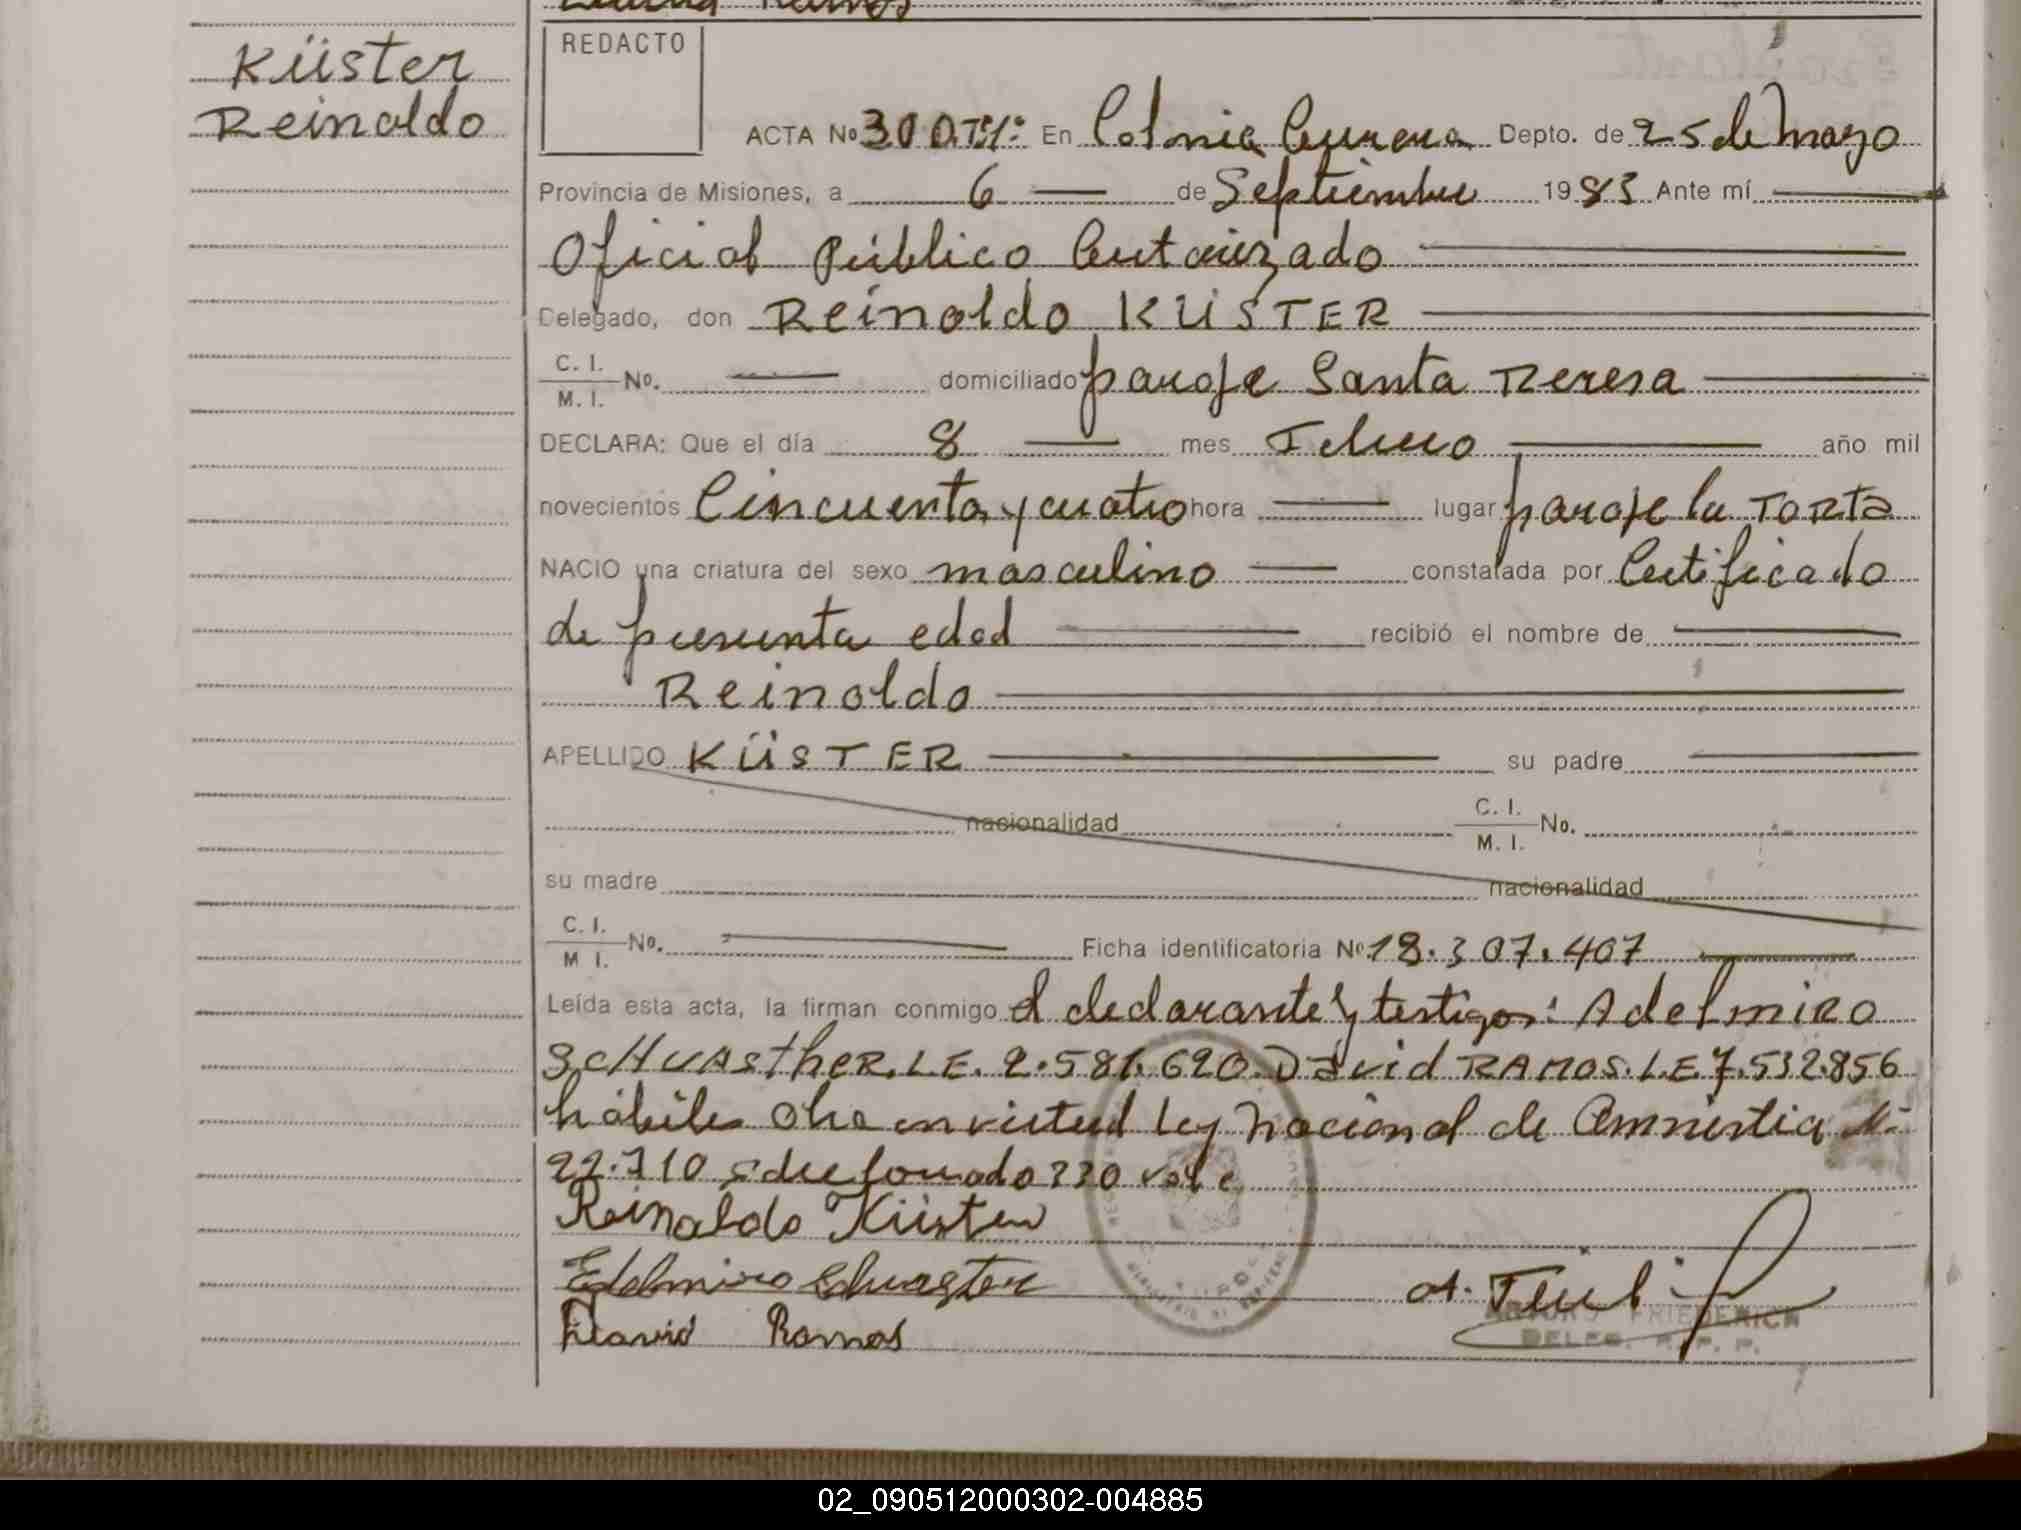 Küster
Reinaldo
REDACTO
ACTA Nº 300.Tº1º En Colonia Aurora Depto. de 25 de Mayo
Provincia de Misiones, a 6 de Septiembre 1983 Ante mí
Oficial Público Autorizado
Delegado, don Reinaldo KÜSTER
C. I.
M. I. No. domiciliado paraje Santa Teresa
DECLARA: Que el día 8 mes Febrero año mil
novecientos Cincuenta y cuatro hora lugar paraje la TORTA
NACIO una criatura del sexo masculino constatada por Certificado
de presunta edad recibió el nombre de
Reinaldo
APELLIDO KÜSTER su padre
nacionalidad C. I.
M. I. No.
su madre nacionalidad
C. I.
M I. No. Ficha identificatoria Nº 18.307.407
Leída esta acta, la firman conmigo el declarante y testigos: Adelmiro
SCHUASTHER. L.E. 2.581.620. David RAMOS. L.E. 7.532.856
hábiles en virtud Ley Nacional de Amnistia Nº
22.710 330 vale
Reinaldo Küster
Edelmiro Schuaster
David Ramos
ARTURO FRIEDERICH
DELEG. R. P. P.
02_090512000302-004885